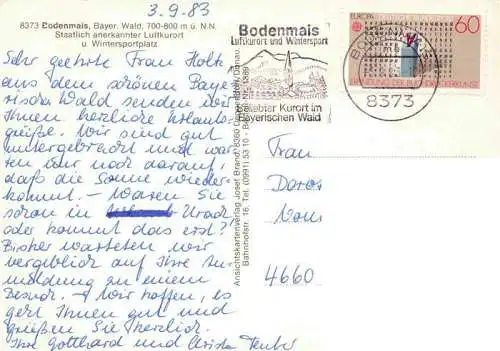 3.9.83
8373 Bodenmais, Bayer. Wald, 700-800 m ü. N.N.
Staatlich anerkannter Luftkurort
u. Wintersportplatz
Sehr geehrte Frau Holte
aus dem schönen Baye
rischen Wald senden wir
Ihnen herzliche Urlaubs-
grüße. Wir sind gut
untergebracht und war
ten nur noch darauf,
daß die Sonne wieder-
kommt. – Waren Sie
schon in Urach
oder kommt das erst?
Bisher warteten wir
vergeblich auf Ihre An
meldung zu einem
Besuch. – Wir hoffen, es
geht Ihnen gut und
grüßen Sie herzlich.
Ihre Gotthard und Christa
Ansichtskartenverlag Josef Brandl, 8360 Deggendorf/Donau
Bahnhofstr. 16, Tel. (0991) 5310 - Bestell-Nr.
Bodenmais
Luftkurort und Wintersport
beliebter Kurort im
Bayerischen Wald
EUROPA
60
ERFINDUNG DER BUCHDRUCKERKUNST
BODENMAIS
8373
Frau
4660